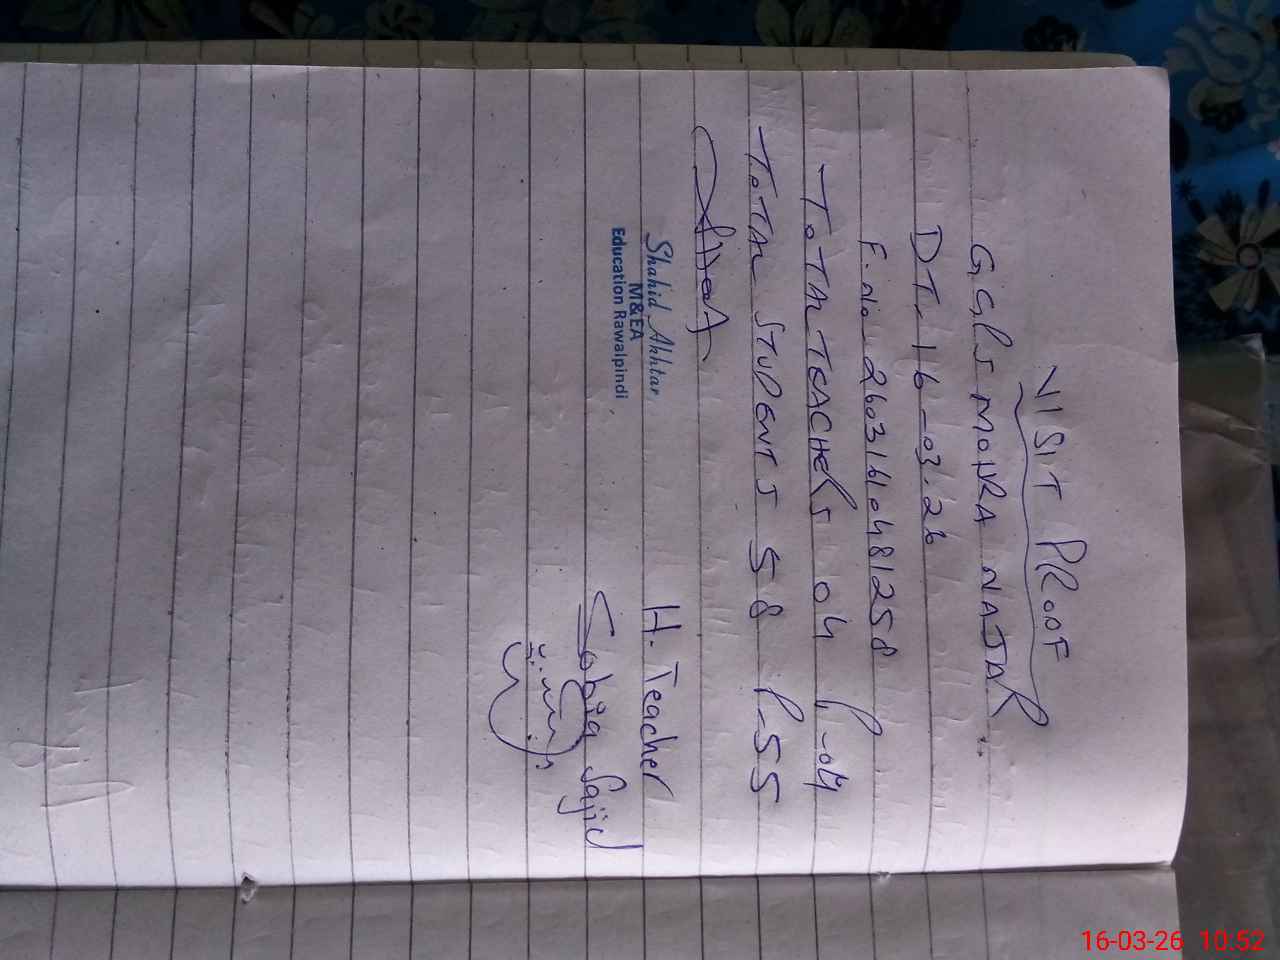 VISIT PROOF
GGPS MOHRA NAJAR
DT. 16-03-26
F.No. 26031610481258
TOTAL TEACHERS 04 P-04
TOTAL STUDENTS 58 P-55
Shahid Akhtar
M&EA
Education Rawalpindi
H. Teacher
Sobia Sajid
16-03-26 10:52